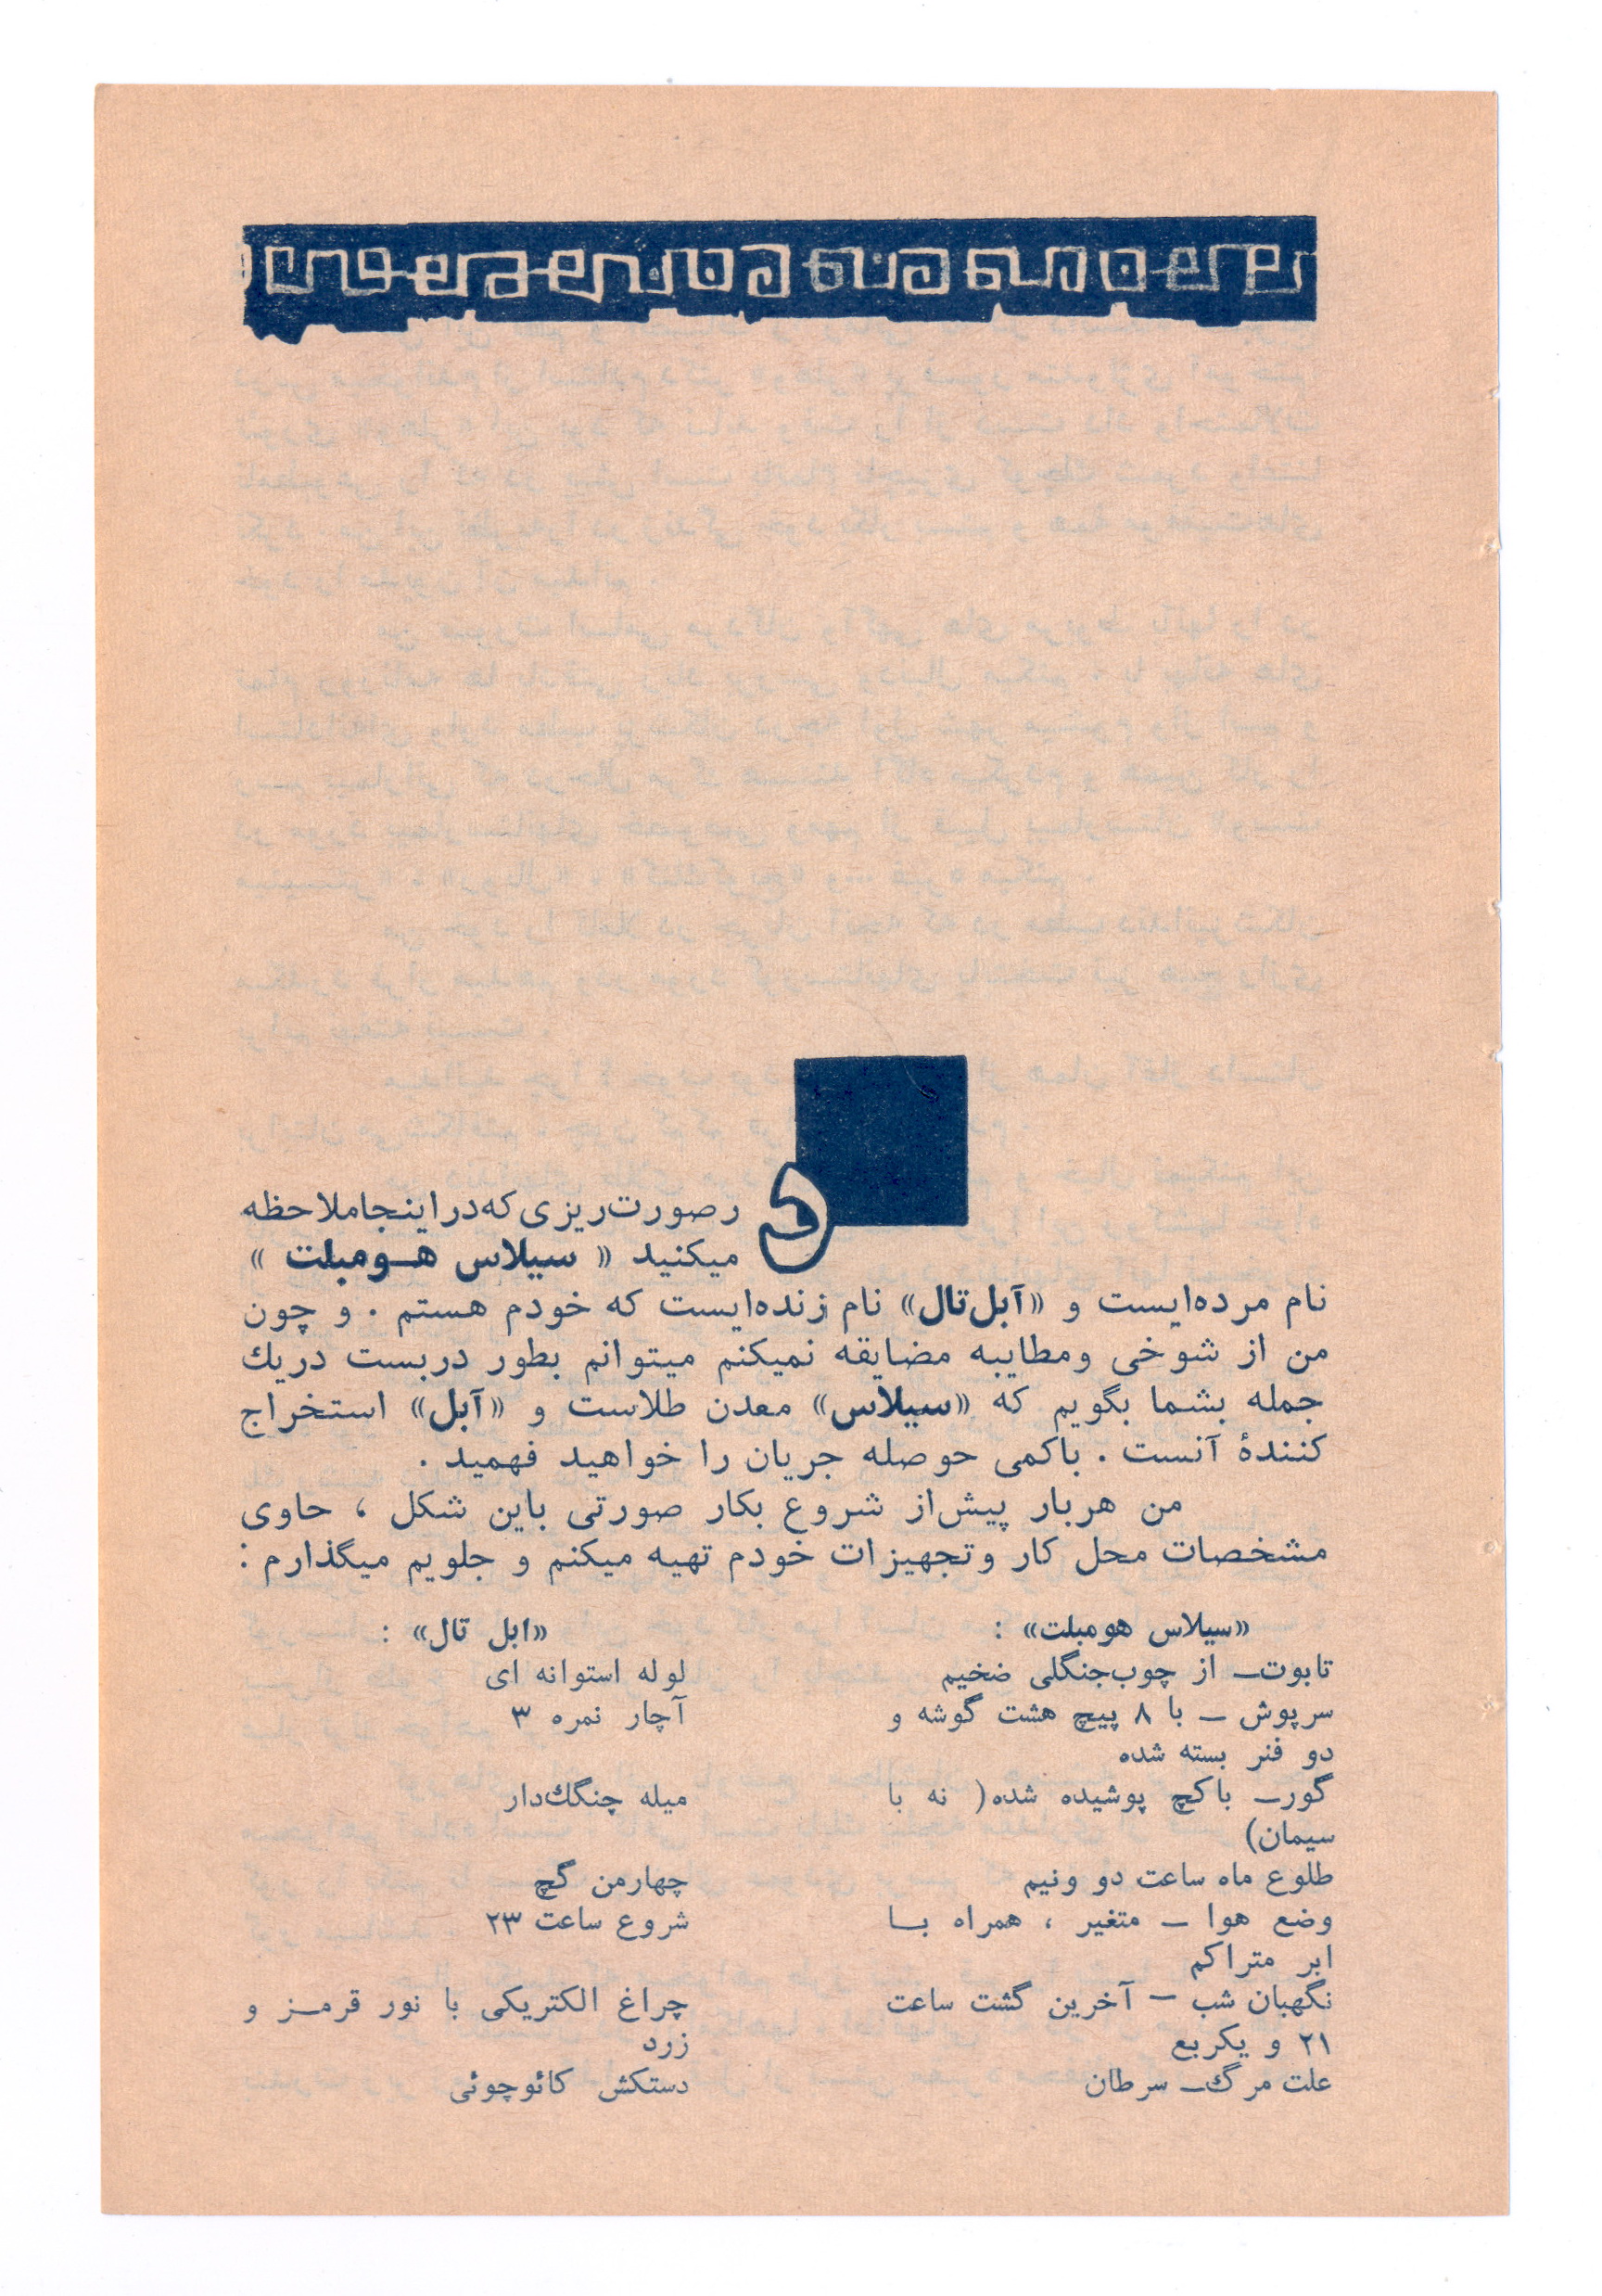 در صورت‌ریزی که در اینجا ملاحظه
میکنید « سیلاس هـومبلت »
نام مرده‌ایست و «آبل‌تال» نام زنده‌ایست که خودم هستم . و چون
من از شوخی ومطایبه مضایقه نمیکنم میتوانم بطور دربست دریك
جمله بشما بگویم که «سیلاس» معدن طلاست و «آبل» استخراج
کنندهٔ آنست . باکمی حوصله جریان را خواهید فهمید .
من هربار پیش‌از شروع بکار صورتی باین شکل ، حاوی
مشخصات محل کار وتجهیزات خودم تهیه میکنم و جلویم میگذارم :
«سیلاس هومبلت» :
تابوت‌ــ از چوب‌جنگلی ضخیم
سرپوش ــ با ۸ پیچ هشت گوشه و
دو فنر بسته شده
گورــ باگچ پوشیده شده( نه با
سیمان)
طلوع ماه ساعت دو ونیم
وضع هوا ــ متغیر ، همراه بــا
ابر متراکم
نگهبان شب ــ آخرین گشت ساعت
۲۱ و یکربع
علت مرگ‌ــ سرطان
«ابل تال» :
لوله استوانه ای
آچار نمره ۳
میله چنگك‌دار
چهارمن گچ
شروع ساعت ۲۳
چراغ الکتریکی با نور قرمـز و
زرد
دستکش کائوچوئی